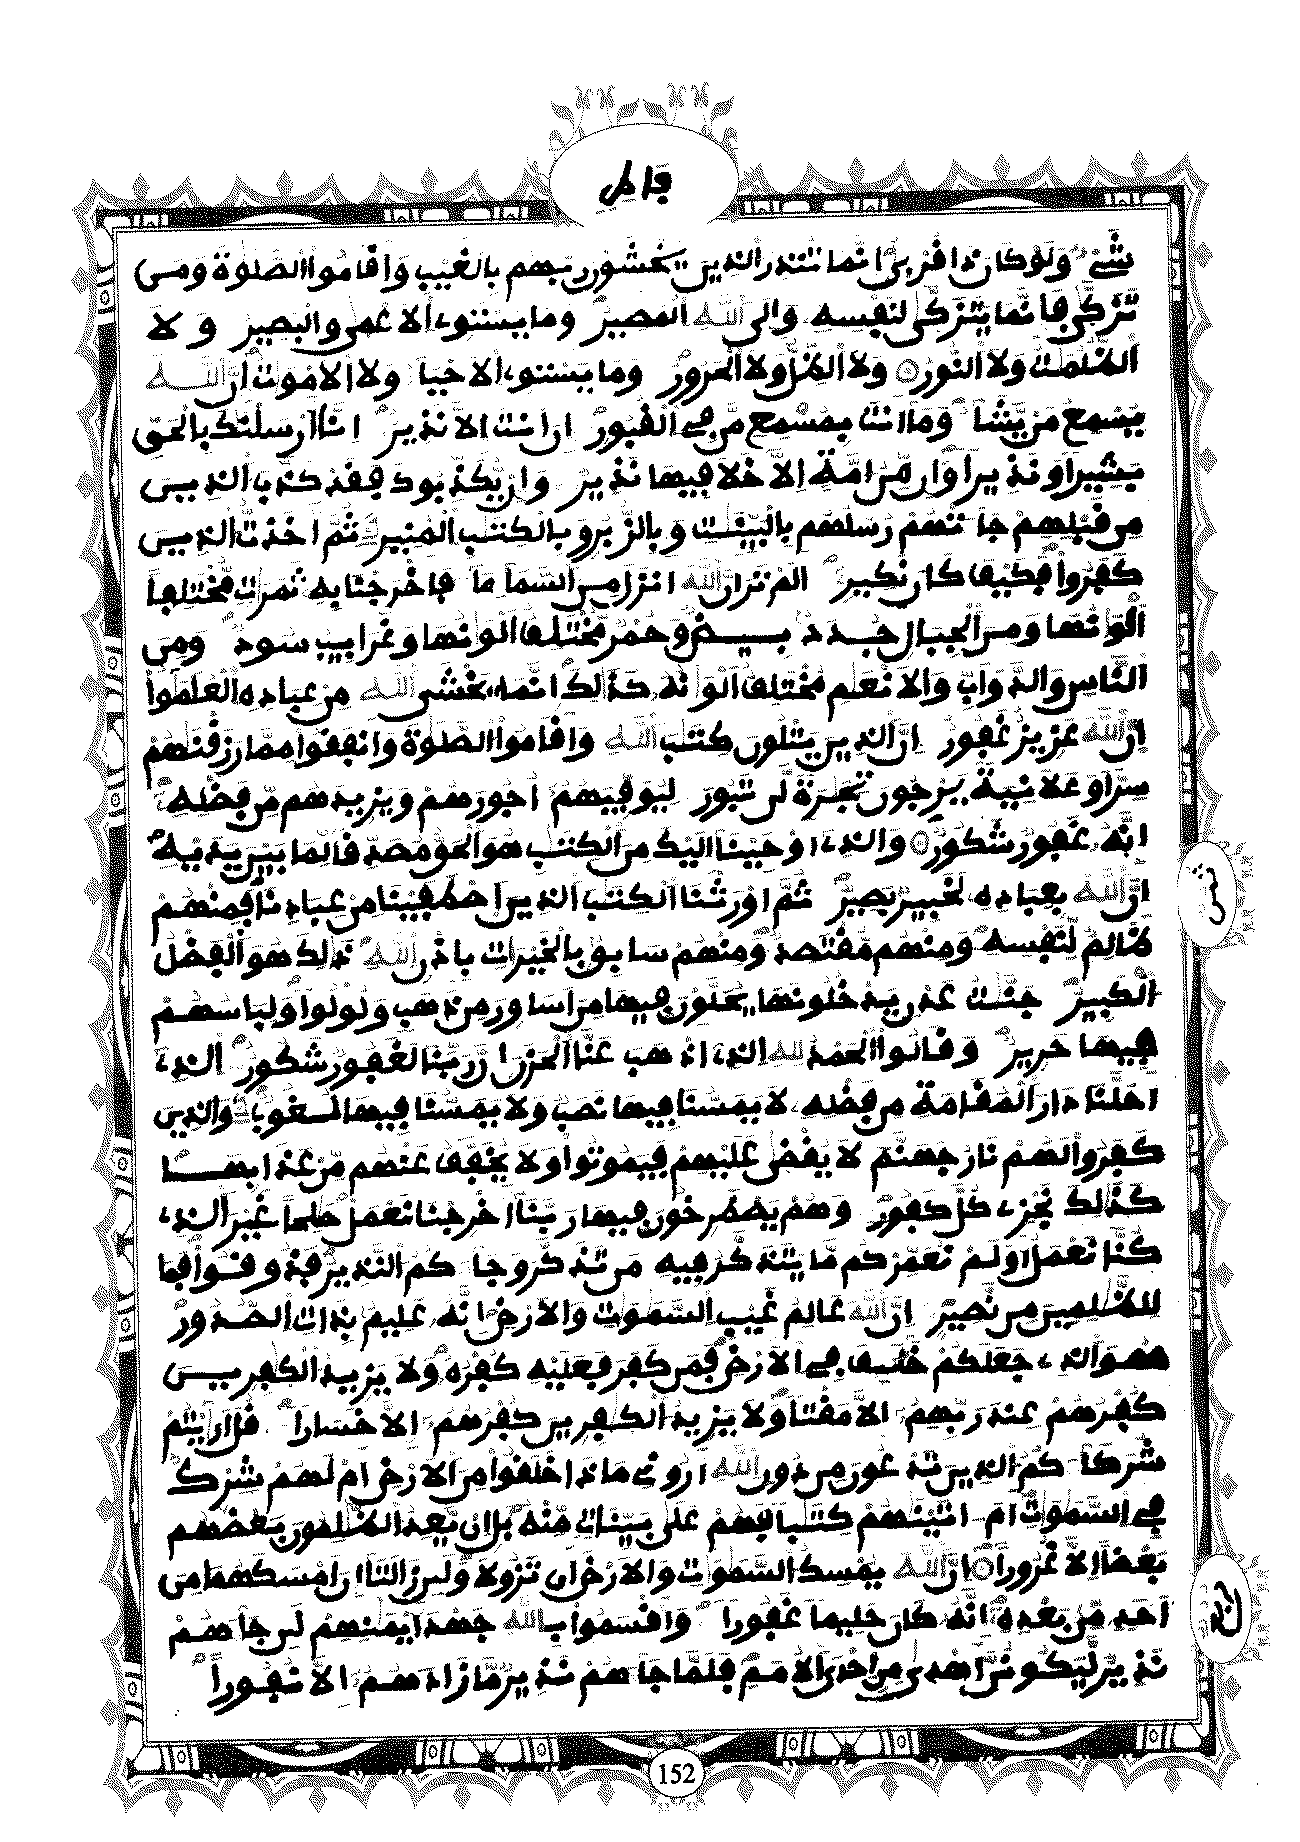 فاطر
شيء ولو كان ذا قربى انما تنذر الذين يخشون ربهم بالغيب واقاموا الصلوة ومن
تزكى فانما يتزكى لنفسه والى الله المصير وما يستوي الاعمى والبصير ولا
الظلمت ولا النور ولا الظل ولا الحرور وما يستوي الاحيا ولا الاموت ان الله
يسمع من يشا وما انت بمسمع من في القبور ان انت الا نذير انا ارسلنك بالحق
بشيرا ونذيرا وان من امة الا خلا فيها نذير وان يكذبوك فقد كذب الذين
من قبلهم جاتهم رسلهم بالبينت وبالزبر وبالكتب المنير ثم اخذت الذين
كفروا فكيف كان نكير الم تر ان الله انزل من السما ما فاخرجنا به ثمرت مختلفا
الونها ومن الجبال جدد بيض وحمر مختلف الونها وغرابيب سود ومن
الناس والدواب والانعم مختلف الونه كذلك انما يخشى الله من عباده العلموا
ان الله عزيز غفور ان الذين يتلون كتب الله واقاموا الصلوة وانفقوا مما رزقنهم
سرا وعلانية يرجون تجرة لن تبور ليوفيهم اجورهم ويزيدهم من فضله
انه غفور شكور والذي اوحينا اليك من الكتب هو الحق مصدقا لما بين يديه
ان الله بعباده لخبير بصير ثم اورثنا الكتب الذين اصطفينا من عبادنا فمنهم
ظالم لنفسه ومنهم مقتصد ومنهم سابق بالخيرات باذن الله ذلك هو الفضل
الكبير جنت عدن يدخلونها يحلون فيها من اساور من ذهب ولولوا ولباسهم
فيها حرير وقالوا الحمد لله الذي اذهب عنا الحزن ان ربنا لغفور شكور الذي
احلنا دار المقامة من فضله لا يمسنا فيها نصب ولا يمسنا فيها لغوب والذين
كفروا لهم نار جهنم لا يقضى عليهم فيموتوا ولا يخفف عنهم من عذابها
كذلك نجزي كل كفور وهم يصطرخون فيها ربنا اخرجنا نعمل صلحا غير الذي
كنا نعمل اولم نعمركم ما يتذكر فيه من تذكر وجاكم النذير فذوقوا فما
للظلمين من نصير ان الله عالم غيب السموت والارض انه عليم بذات الصدور
هو الذي جعلكم خليف في الارض فمن كفر فعليه كفره ولا يزيد الكفرين
كفرهم عند ربهم الا مقتا ولا يزيد الكفرين كفرهم الا خسارا قل اريتم
شركاكم الذين تدعون من دون الله اروني ماذا خلقوا من الارض ام لهم شرك
في السموت ام اتينهم كتبا فهم على بينات منه بل ان يعد الظلمون بعضهم
بعضا الا غرورا ان الله يمسك السموت والارض ان تزولا ولين زالتا ان امسكهما من
احد من بعده انه كان حليما غفورا واقسموا بالله جهد ايمنهم لين جاهم
نذير ليكونن اهدى من احدى الامم فلما جاهم نذير ما زادهم الا نفورا
ثمن
152